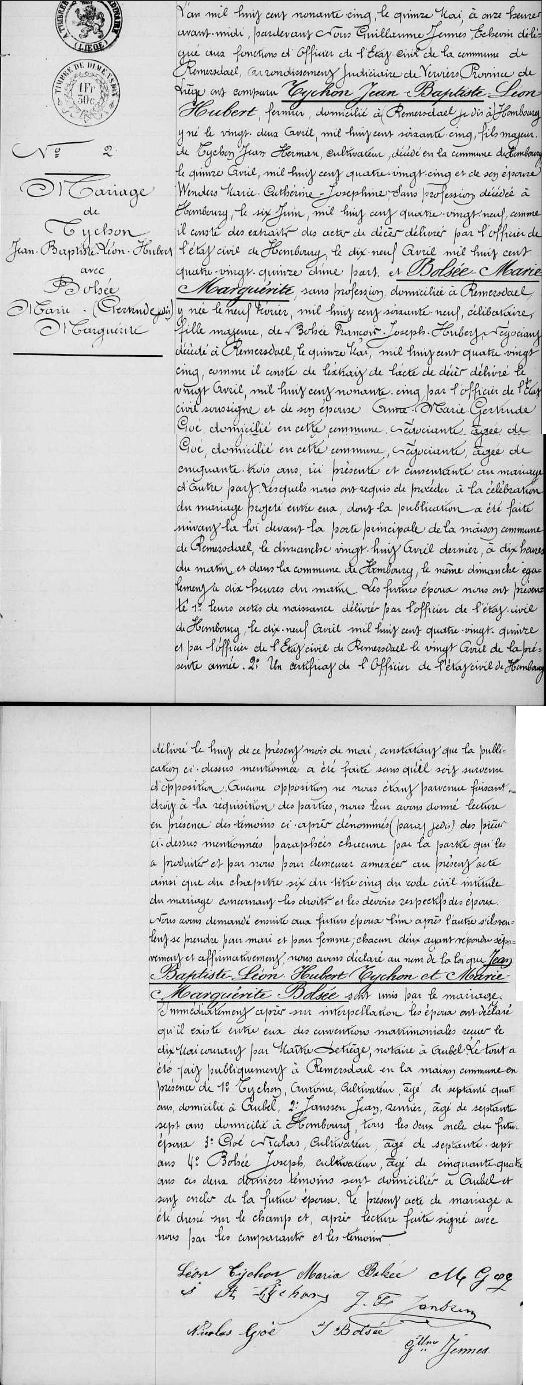 (LIEGE)
TIMBRE DE DIMENSION
1 Fr
50c
N° 2
Mariage
de
Tychon
Jean Baptiste Léon Hubert
avec
Bolsée
Marie
Marguérite
L'an mil huit cent nonante cinq, le quinze Mai, à onze heures
avant-midi, pardevant Nous Guillaume Jennes Echevin délé-
gué aux fonctions d'Officier de l'Etat Civil de la commune de
Remersdael, Arrondissement Judiciaire de Verviers Province de
Liège ont comparu Tychon Jean Baptiste Léon
Hubert, fermier, domicilié à Remersdael jadis à Hombourg
y né le vingt deux Avril, mil huit cent soixante cinq, fils majeur
de Tychon Jean Herman, cultivateur, décédé en la commune de Hombourg
le quinze Avril, mil huit cent quatre-vingt-cinq et de son épouse
Wenders Marie-Cathérine-Joséphine Sans profession décédée à
Hombourg, le six Juin, mil huit cent quatre-vingt neuf, comme
il conste des extraits des actes de décès délivrés par l'officier de
l'état civil de Hombourg, le dix neuf Avril mil huit cent
quatre-vingt quinze d'une part, et Bolsée Marie
Marguérite, sans profession, domiciliée à Remersdael
y née le neuf Février, mil huit cent soixante neuf, célibataire,
fille majeure, de Bolsée François-Joseph-Hubert, Négociant
décédé à Remersdael, le quinze Mai, mil huit cent quatre vingt
cinq, comme il conste de l'extrait de l'acte de décès délivré le
vingt Avril, mil huit cent nonante cinq par l'officier de l'Etat
civil soussigné et de son épouse Anna-Marie Gertrude
Goé, domicilié en cette commune, négociante, agée de
Goé, domicilié en cette commune, négociante, âgée de
cinquante trois ans, ici présente et consentante au mariage
d'autre part. Lesquels nous ont requis de procéder à la célébration
du mariage projeté entre eux, dont la publication a été faite
suivant la loi devant la porte principale de la maison commune
de Remersdael, le dimanche vingt huit Avril dernier, à dix heures
du matin et dans la commune de Hombourg, le même dimanche éga-
lement à dix heures du matin. Les futurs époux nous ont présen-
té 1° leurs actes de naissance délivrés par l'officier de l'état civil
de Hombourg, le dix-neuf Avril mil huit cent quatre-vingt-quinze
et par l'officier de l'Etat civil de Remersdael le vingt Avril de la pré-
sente année. 2° Un certificat de l'Officier de l'état civil de Hombourg
délivré le huit de ce présent mois de mai, constatant que la publi-
cation ci-dessus mentionnée a été faite sans qu'il soit survenu
d'opposition. Aucune opposition ne nous étant parvenue faisant
droit à la réquisition des parties, nous leur avons donné lecture
en présence des témoins ci-après dénommés des pièces
ci-dessus mentionnées paraphées chacune par la partie qui les
a produites et par nous pour demeurer annexées au présent acte
ainsi que du chapitre six du titre cinq du code civil intitulé
du mariage concernant les droits et les devoirs respectifs des époux.
Nous avons demandé ensuite aux futurs époux l'un après l'autre s'ils veu-
lent se prendre pour mari et pour femme, chacun d'eux ayant répondu sépa-
rement et affirmativement, nous avons déclaré au nom de la loi que Jean
Baptiste Léon Hubert Tychon et Marie
Marguérite Bolsée sont unis par le mariage.
Immédiatement après sur interpellation les époux ont déclaré
qu'il existe entre eux des conventions matrimoniales reçues le
dix Mai courant par Maître notaire à Aubel. Le tout a
été fait publiquement à Remersdael en la maison commune en
présence de 1° Tychon, Antoine, cultivateur, âgé de septante quat
ans, domicilié à Aubel, 2° Janssen Jean, rentier, âgé de septante
sept ans domicilié à Hombourg, tous les deux oncle du futur
époux 3° Goé Nicolas, Cultivateur, âgé de septante-sept
ans 4° Bolsée Joseph, cultivateur, âgé de cinquante-quatre
ans ces deux derniers témoins sont domiciliés à Aubel et
sont oncles de la future épouse. Le présent acte de mariage a
été dressé sur le champ et, après lecture faite signé avec
nous par les comparants et les témoins
Léon Tychon Maria Bolsée M G Goé
A Tychon J. F. Janssen
Nicolas Goé J Bolsée
Gllme Jennes